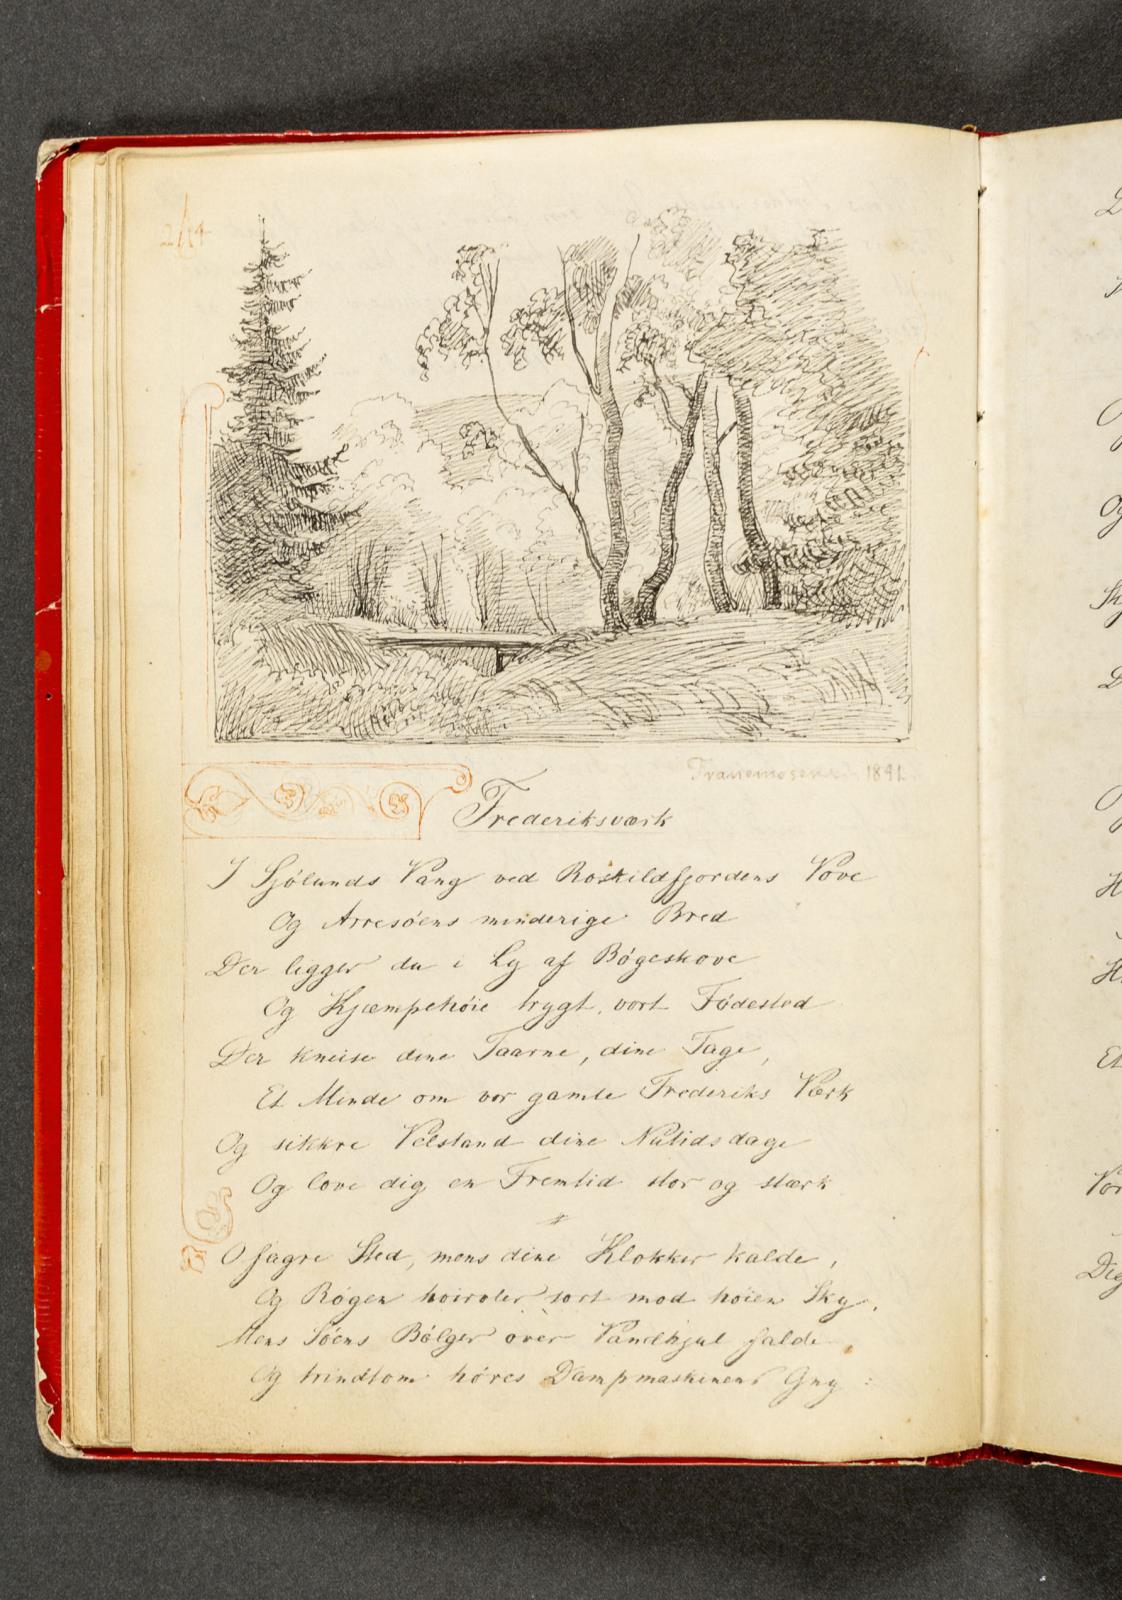 2/14
Tranemosen 1891.
Frederiksværk
I Sjølunds Vang ved Roskildfjordens Vove
Og Arresøens minderige Bred
Der ligger du i Ly af Bøgeskove
Og Kjæmpehøie trygt, vort Fødested
Der kneise dine Taarne, dine Tage,
Et Minde om vor gamle Frederiks Værk
Og sikkre Velstand dine Nutidsdage
Og love dig en Fremtid stor og stærk
O fagre Sted, mens dine Klokker kalde,
Og Røgen sort mod høien Sky,
Mens Søens Bølger over Vandhjul falde
Og trindtom høres Dampmaskinens Gny :